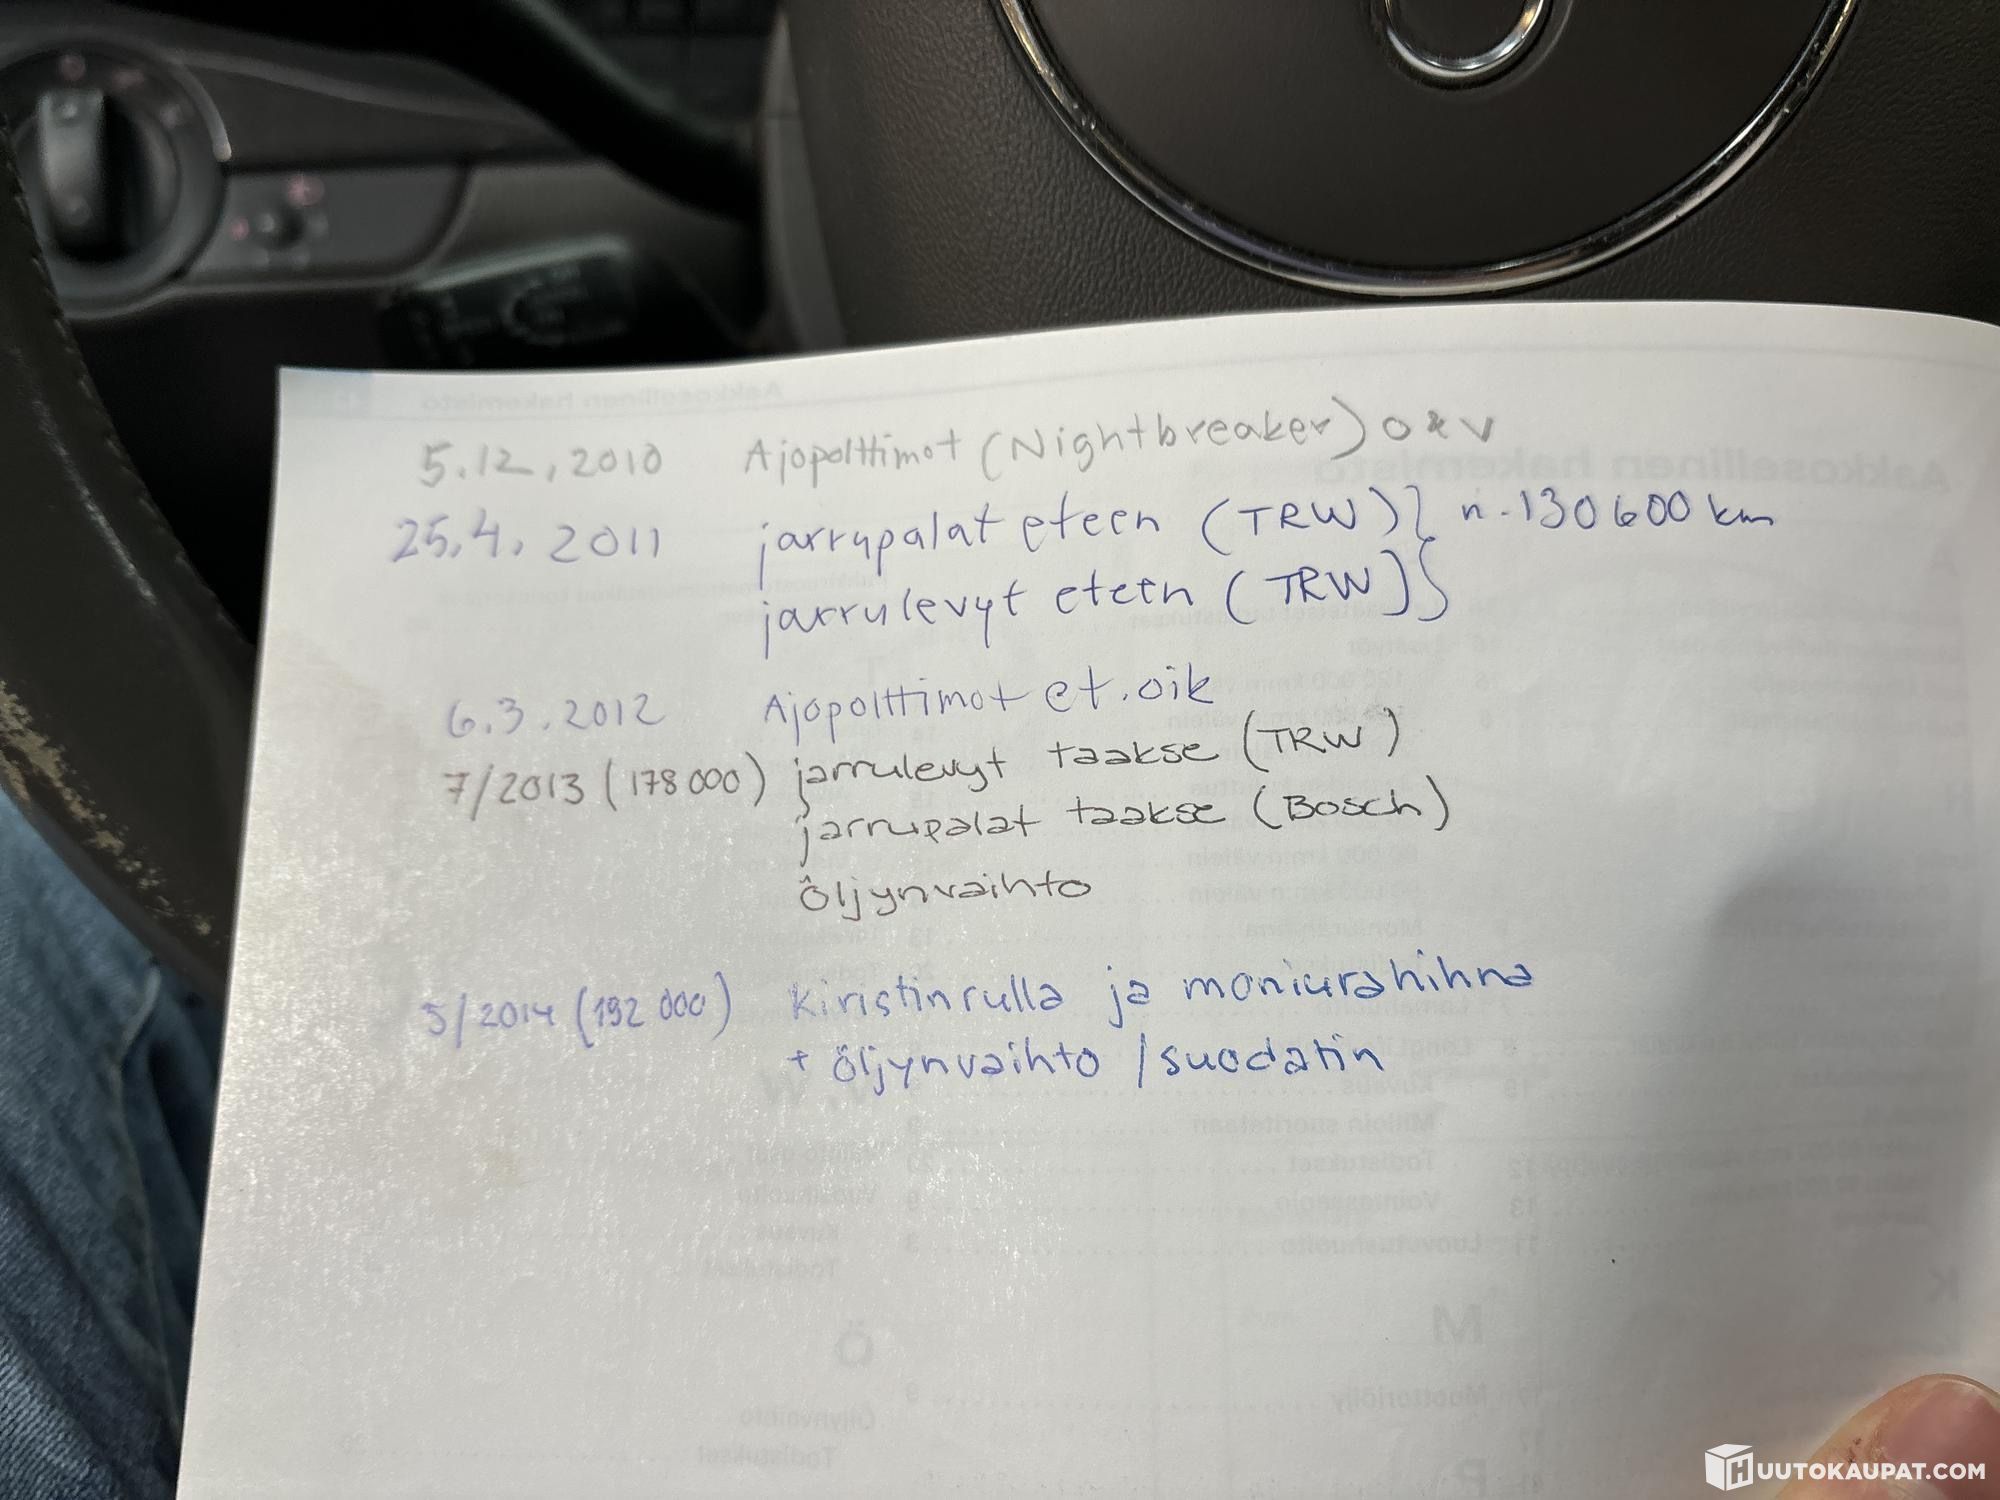 5.12.2010 Ajopolttimot (Nightbreaker) O & V
25.4.2011 jarrupalat eteen (TRW) } n. 130 600 km
jarrulevyt eteen (TRW) }
6.3.2012 Ajopolttimot et. oik
7/2013 (178 000) jarrulevyt taakse (TRW)
jarrupalat taakse (Bosch)
öljynvaihto
5/2014 (192 000) kiristinrulla ja moniurahihna
+ öljynvaihto / suodatin
HUUTOKAUPAT.COM